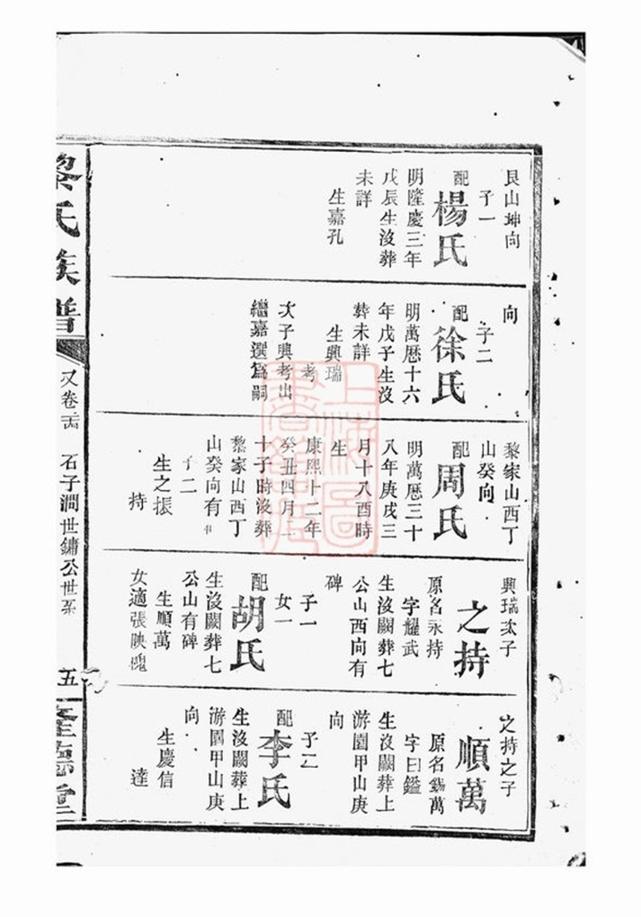 艮山坤向
子一
配
楊氏
明隆慶三年
戊辰生沒葬
未詳
生嘉孔
向
子二
配
徐氏
明萬厯十六
年戊子生沒
葬未詳
生興瑞
考
次子興考出
繼嘉選爲嗣
黎家山西丁
山癸向
配
周氏
明萬厯三十
八年庚戌三
月十八酉時
生
康熙十二年
癸丑四月二
十子時沒葬
黎家山西丁
山癸向有
子二
生之振
持
興瑞次子
之持
原名永持
字耀武
生沒闕葬七
公山酉向有
碑
子一
女一
配
胡氏
生沒闕葬七
公山有碑
生順萬
女適張映槐
之持之子
順萬
原名錫萬
字曰鑑
生沒闕葬上
游園甲山庚
向
子二
配
李氏
生沒闕葬上
游園甲山庚
向
生慶信
達
黎氏族譜
又卷
石子澗世鏞公世系
五
隆德堂